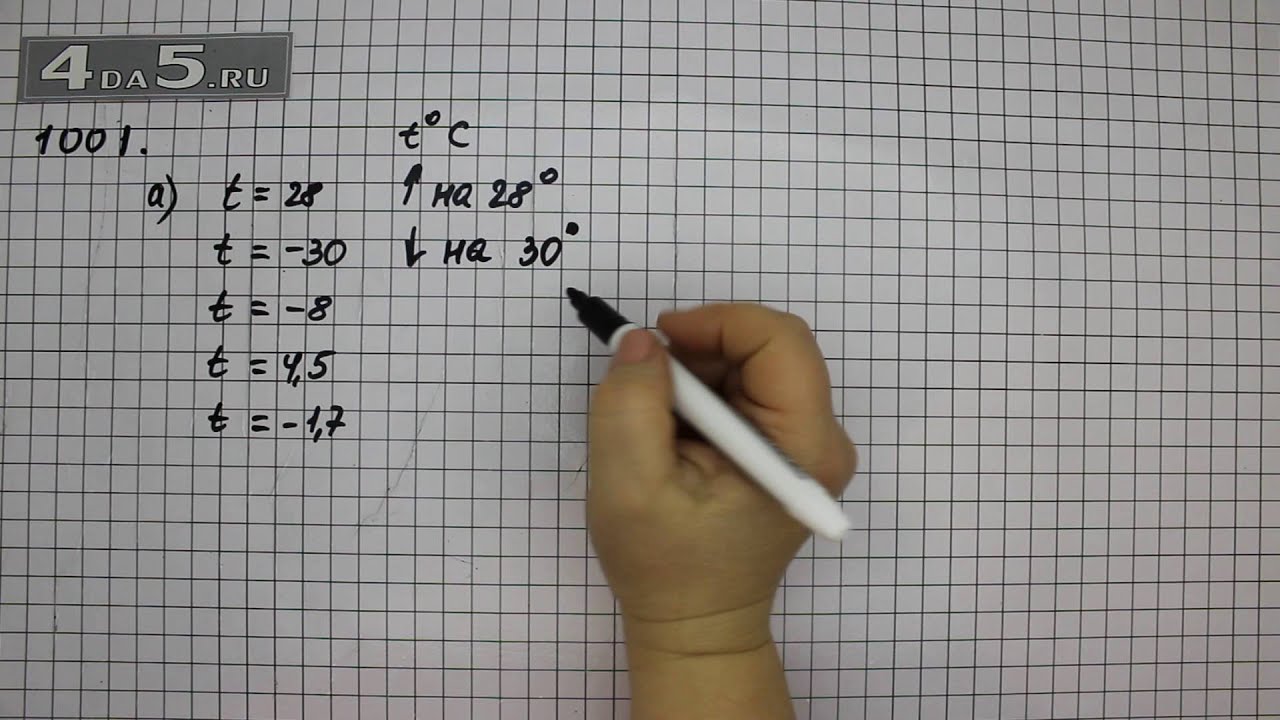 4DA5.RU
1001. t° C
а) t = 28 ↑ на 28°
t = -30 ↓ на 30°
t = -8
t = 4,5
t = -1,7